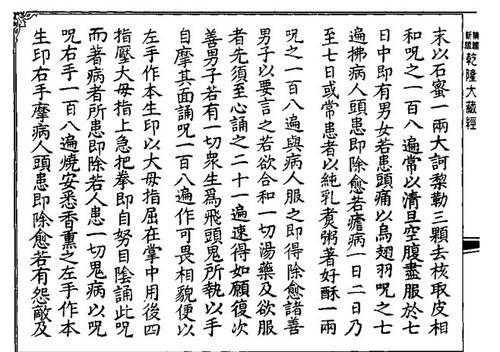 乾隆大藏經
末以石蜜一兩大訶黎勒三顆去核取皮相
和呪之一百八遍常以清旦空腹盡服於七
日中即有男女若患頭痛以烏翅羽呪之七
遍拂病人頭患即除愈若瘧病一日二日乃
至七日或常患者以純乳煮粥著好酥一兩
呪之一百八遍與病人服之即得除愈諸善
男子以要言之若欲合和一切湯藥及欲服
者先須至心誦之二十一遍速得如願復次
善男子若有一切衆生為飛頭鬼所執以手
自摩其面誦呪一百八遍作可畏相貌便以
左手作本生印以大母指屈在掌中用後四
指壓大母指上急把拳即自努目陰誦此呪
而著病者所患即除若人患一切鬼病以呪
呪右手一百八遍燒安悉香熏之左手作本
生印右手摩病人頭患即除愈若有怨敵及